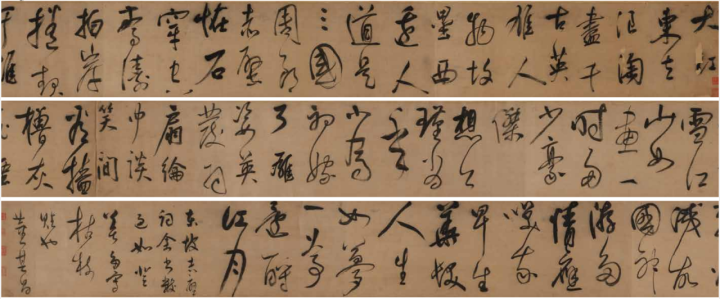 大江
東去
浪淘
盡千
古英
雄人
物故
壘西
邊人
道是
三國
周郎
赤壁
怪石
穿空
驚濤
拍岸
捲起
千堆
雪江
山如
畫一
時多
少豪
傑
想公
瑾當
年
小喬
初嫁
了雄
姿英
發羽
扇綸
巾談
笑間
檣
櫓灰
飛煙
滅故
國神
游多
情應
笑我
早生
華髮
人生
如夢
一尊
還酹
江月
東坡赤壁
詞余書數
過如
董其昌